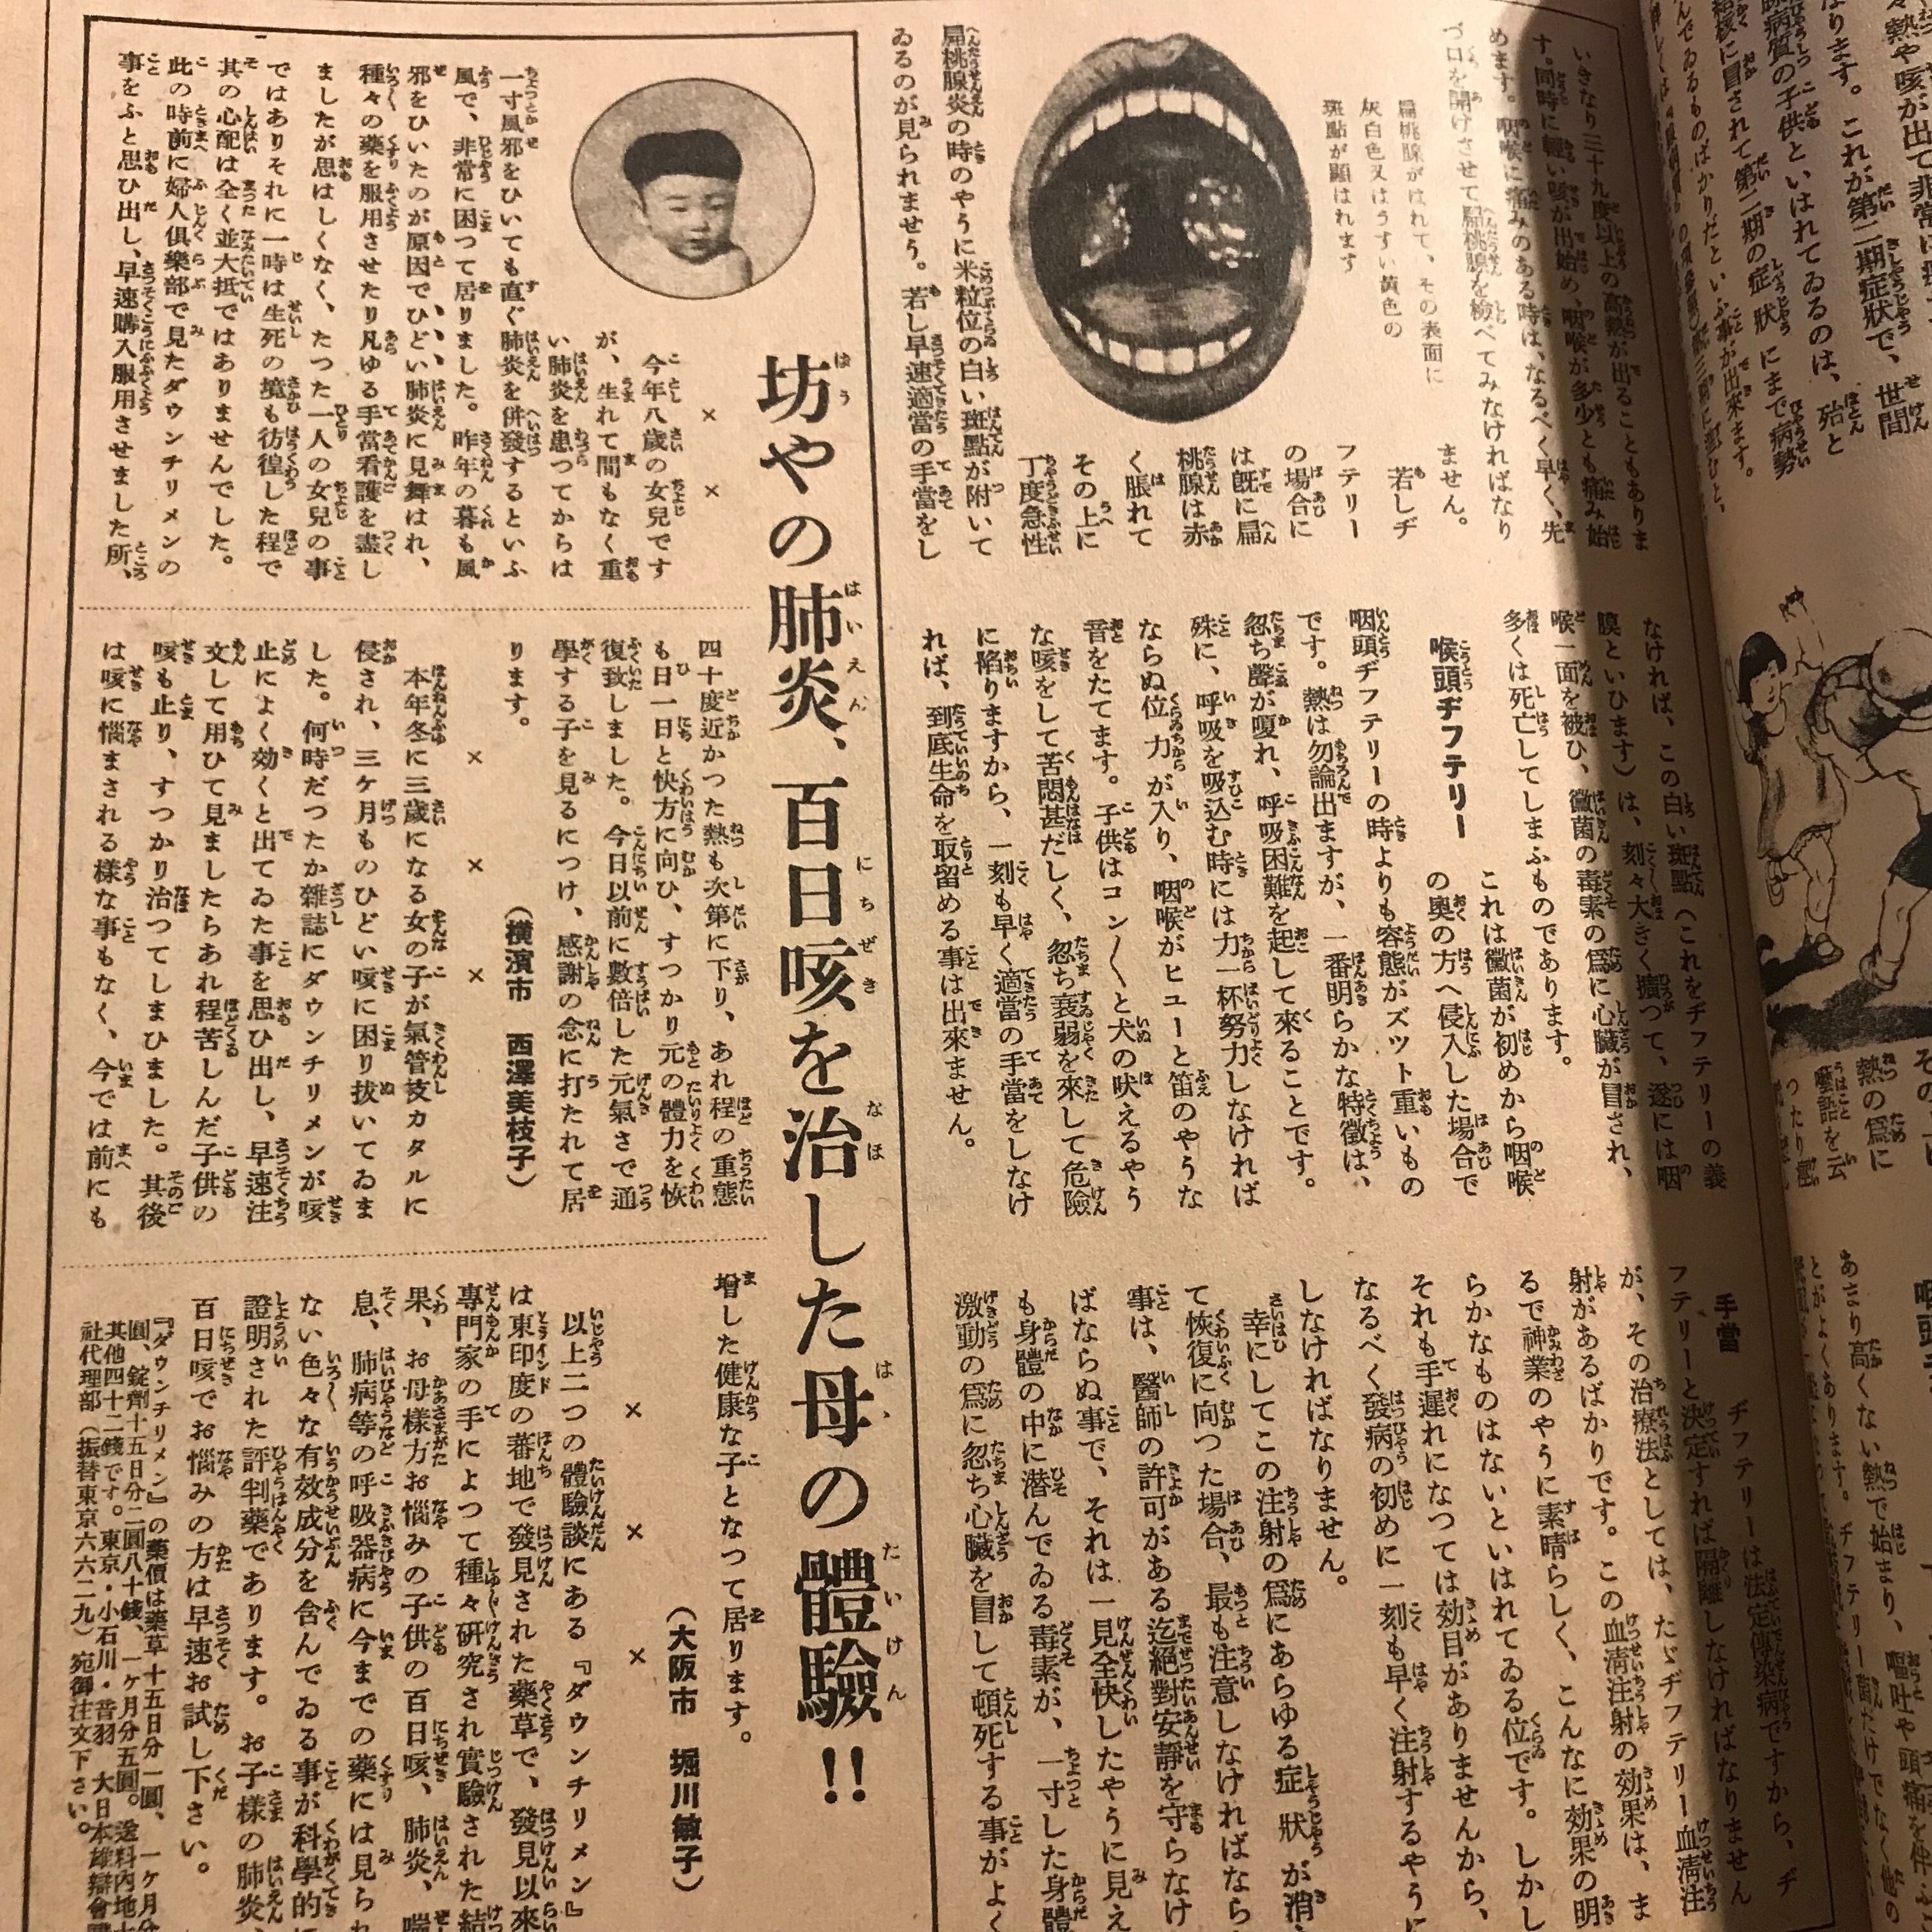 いきなり三十九度以上の高熱が出ることもありま
す。同時に輕い咳が出始め、咽喉が多少とも痛み始
めます。咽喉に痛みのある時は、なるべく早く、先
づ口を開けさせて扁桃腺を檢べてみなければなり
ません。
扁桃腺がはれて、その表面に
灰白色又はうすい黄色の
斑點が顯はれます
若しヂ
フテリー
の場合に
は既に扁
桃腺は赤
く脹れて
その上に
丁度急性
扁桃腺炎の時のやうに米粒位の白い斑點が附いて
ゐるのが見られませう。若し早速適當の手當をし
なければ、この白い斑點（これをヂフテリーの義
膜といひます）は、刻々大きく擴つて、遂には咽
喉一面を被ひ、黴菌の毒素の爲に心臟が冒され、
多くは死亡してしまふものであります。
喉頭ヂフテリー
これは黴菌が初めから咽喉
の奥の方へ侵入した場合で
咽頭ヂフテリーの時よりも容態がズツト重いもの
です。熱は勿論出ますが、一番明らかな特徴は、
忽ち聲が嗄れ、呼吸困難を起して來ることです。
殊に、呼吸を吸込む時には力一杯努力しなければ
ならぬ位力が入り、咽喉がヒユーと笛のやうな
音をたてます。子供はコン〱と犬の吠えるやう
な咳をして苦悶甚だしく、忽ち衰弱を來して危險
に陷りますから、一刻も早く適當の手當をしなけ
れば、到底生命を取留める事は出來ません。
手當
ヂフテリーは法定傳染病ですから、ヂ
フテリーと決定すれば隔離しなければなりません
が、その治療法としては、たゞヂフテリー血清注
射があるばかりです。この血清注射の効果は、ま
るで神業のやうに素晴らしく、こんなに効果の明
らかなものはないといはれてゐる位です。しかし
それも手遅れになつては効目がありませんから、
なるべく發病の初めに一刻も早く注射するやうに
しなければなりません。
幸にしてこの注射の爲にあらゆる症狀が消
て恢復に向つた場合、最も注意しなければなら
事は、醫師の許可がある迄絕對安靜を守らなけ
ばならぬ事で、それは一見全快したやうに見え
も身體の中に潛んでゐる毒素が、一寸した身體
激動の爲に忽ち心臟を冒して頓死する事がよく
坊やの肺炎、百日咳を治した母の體驗!!
× ×
今年八歲の女兒です
が、生れて間もなく重
い肺炎を患つてからは
一寸風邪をひいても直ぐ肺炎を併發するといふ
風で、非常に困つて居りました。昨年の暮も風
邪をひいたのが原因でひどい肺炎に見舞はれ、
種々の藥を服用させたり凡ゆる手當看護を盡し
ましたが思はしくなく、たつた一人の女兒の事
ではありそれに一時は生死の境も彷徨した程で
其の心配は全く並大抵ではありませんでした。
此の時前に婦人俱樂部で見たダウンチリメンの
事をふと思ひ出し、早速購入服用させました所、
四十度近かつた熱も次第に下り、あれ程の重態
も日一日と快方に向ひ、すつかり元の體力を恢
復致しました。今日以前に數倍した元氣さで通
學する子を見るにつけ、感謝の念に打たれて居
ります。
（橫濱市　西澤美枝子）
× × ×
本年冬に三歲になる女の子が氣管支カタルに
侵され、三ケ月ものひどい咳に困り拔いてゐま
した。何時だつたか雜誌にダウンチリメンが咳
止によく効くと出てゐた事を思ひ出し、早速注
文して用ひて見ましたらあれ程苦しんだ子供の
咳も止り、すつかり治つてしまひました。其後
は咳に惱まされる樣な事もなく、今では前にも
增した健康な子となつて居ります。
（大阪市　堀川敏子）
× × ×
以上二つの體驗談にある『ダウンチリメン』
は東印度の蕃地で發見された藥草で、發見以來
專門家の手によつて種々研究され實驗された結
果、お母樣方お惱みの子供の百日咳、肺炎、喘
息、肺病等の呼吸器病に今までの藥には見られ
ない色々な有效成分を含んでゐる事が科學的に
證明された評判藥であります。お子樣の肺炎、
百日咳でお惱みの方は早速お試し下さい。
『ダウンチリメン』の藥價は藥草十五日分一圓、一ケ月分
圓、錠劑十五日分二圓八十錢、一ケ月分五圓。送料內地十
其他四十二錢です。東京・小石川・音羽　大日本雄辯會講
社代理部（振替東京六六二九）宛御注文下さい。